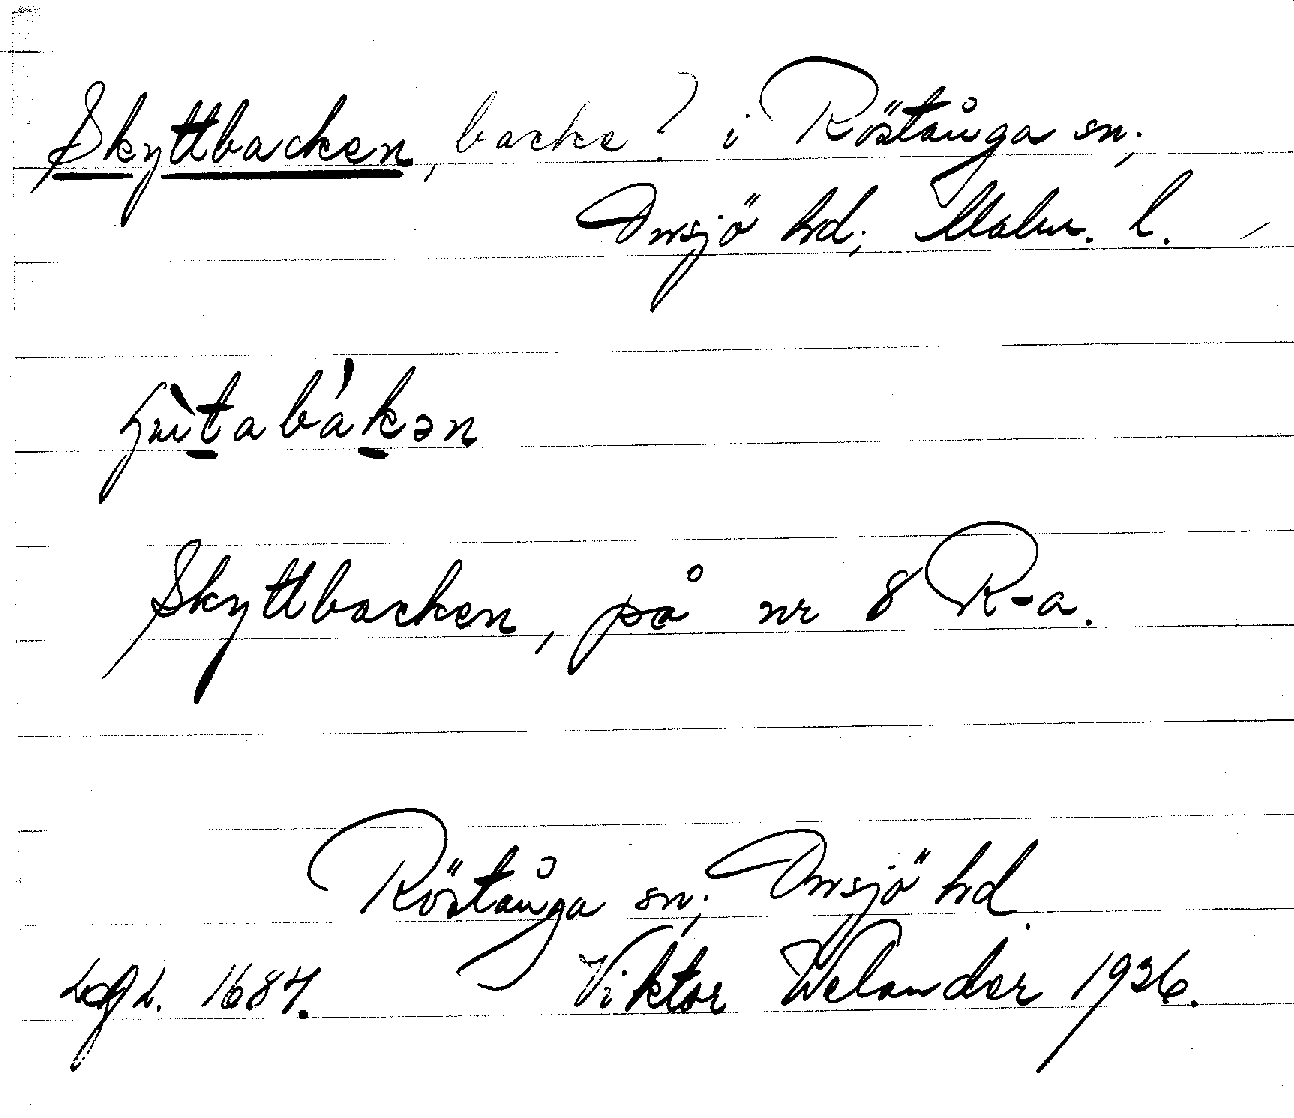 Skyttbacken, backe? i Röstånga sn;
Onsjö hd; Malm. l.
Skyttbacken, på nr 8 R-a.
Röstånga sn; Onsjö hd
1687. Viktor Welander 1936.